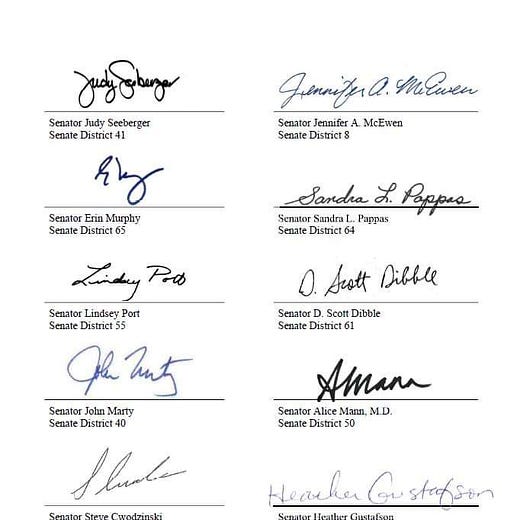 Judy Seeberger
Senator Judy Seeberger
Senate District 41
Jennifer A. McEwen
Senator Jennifer A. McEwen
Senate District 8
Senator Erin Murphy
Senate District 65
Sandra L. Pappas
Senator Sandra L. Pappas
Senate District 64
Lindsey Port
Senator Lindsey Port
Senate District 55
D. Scott Dibble
Senator D. Scott Dibble
Senate District 61
John Marty
Senator John Marty
Senate District 40
AMann
Senator Alice Mann, M.D.
Senate District 50
Senator Steve Cwodzinski
Heather Gustafson
Senator Heather Gustafson